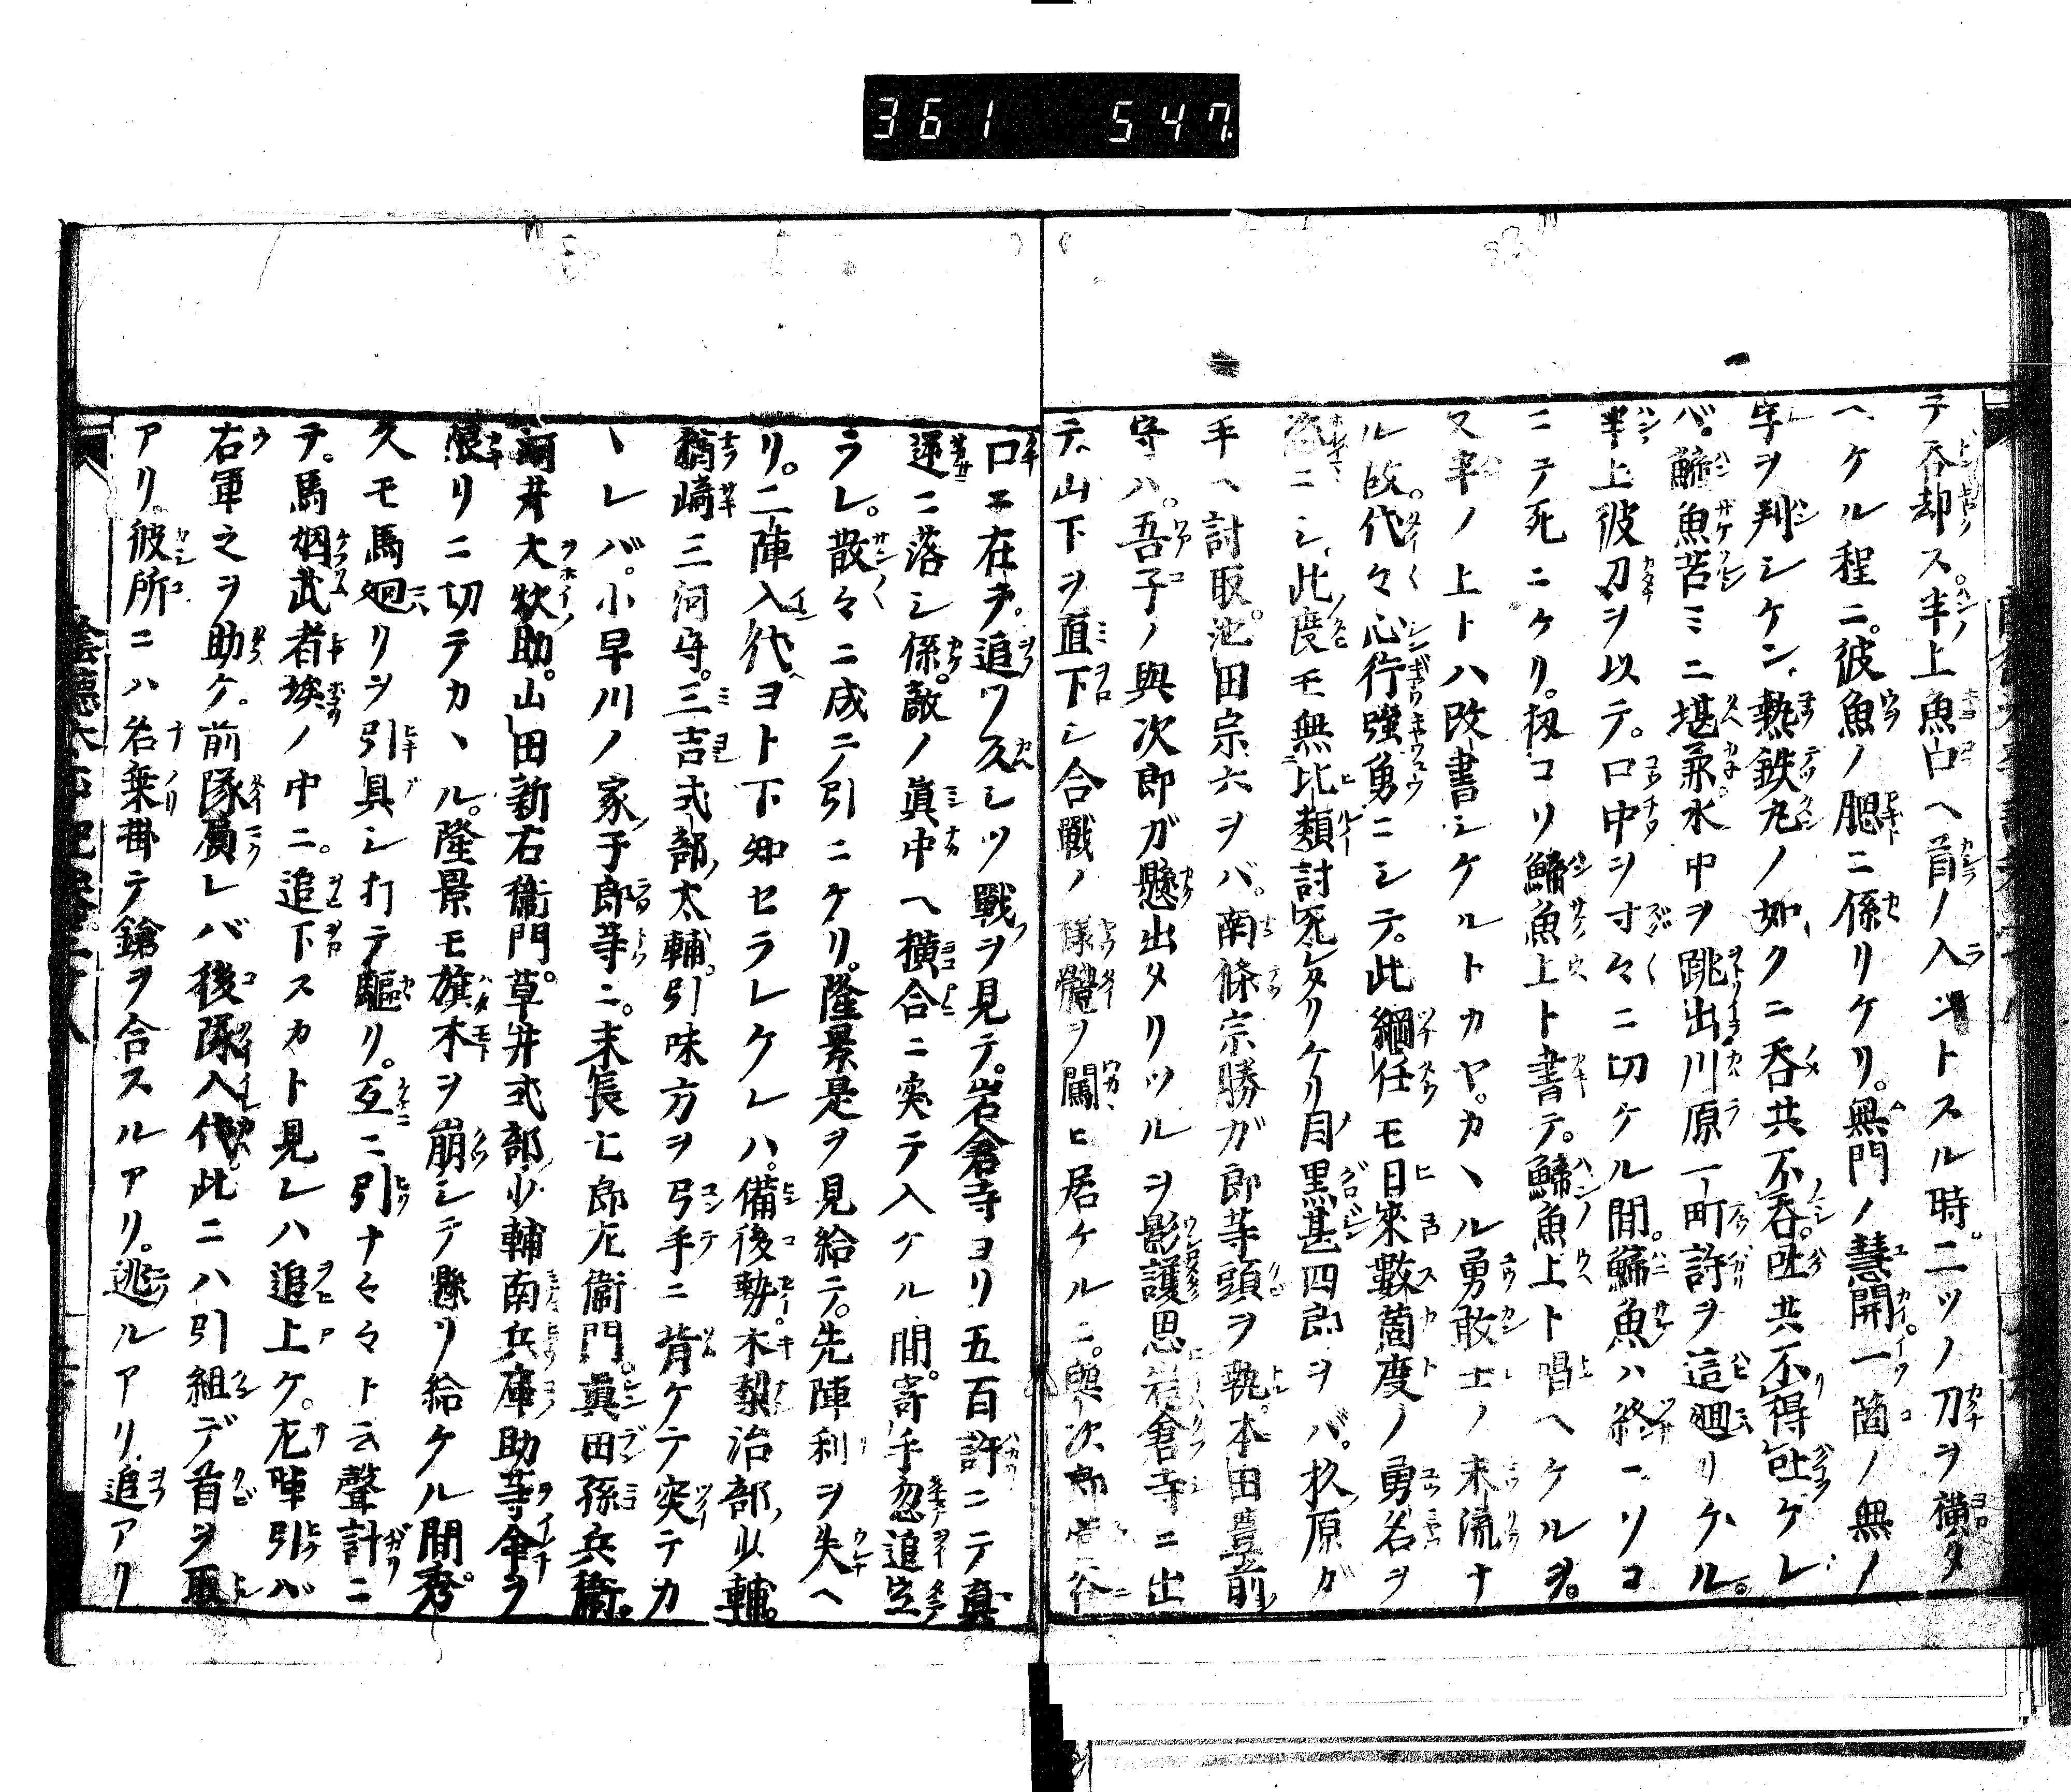 361 547
テ呑却ス。半上魚口ヘ首ノ入ントスル時。二ツノ刀ヲ横タ
ヘケル程ニ。彼魚ノ腮ニ係リケリ。無門ノ慧開一箇ノ無ノ
字ヲ判シケン、熱鉄丸ノ如クニ呑共不呑。吐共不得吐ケレ
バ。鰤魚苦ミニ堪兼水中ヲ跳出川原一町許ヲ這廻リケル。
半上彼刀ヲ以テ。口中ヲ寸々ニ切ケル間。鰤魚ハ終ニソコ
ニテ死ニケリ。扨コソ鰤魚上ト書テ。鰤魚上ト唱ヘケルヲ。
又半ノ上トハ改書シケルトカヤ。カヽル勇敢士ノ末流ナ
ル故。代々心行強勇ニシテ。此綱任モ日來數箇度ノ勇名ヲ
ニシ、此度モ無比類討死シタリケリ目黒甚四郎ヲバ。杦原ガ
手ヘ討取。池田宗六ヲバ。南條宗勝ガ郎等頭ヲ執。本田豊前
守ハ。吾子ノ與次郎ガ懸出タリツルヲ影護思岩倉寺ニ出
テ、山下ヲ直下シ合戰ノ様體ヲ闚ヒ居ケルニ。與次郎
口ニ在テ。追ツ久シツ戰ヲ見テ。岩倉寺ヨリ五百許ニテ真
逆ニ落シ係。敵ノ真中ヘ横合ニ突テ入ケル間。寄手忽追立
ラレ。散々ニ成テ引ニケリ。隆景是ヲ見給テ。先陣利ヲ失ヘ
リ。二陣入代ヨト下知セラレケレハ。備後勢木梨治部少輔。
楢﨑三河守。三吉式部太輔。引味方ヲ弓手ニ背ケテ突テカ
ヽレバ。小早川ノ家子郎等ニ。末長七郎左衛門。眞田孫兵衛。
河井大炊助。山田新右衛門。草井式部少輔南兵庫助等命ヲ
限リニ切テカヽル。隆景モ旗本ヲ崩シテ懸リ給ケル間。秀
久モ馬廻リヲ引具シ打テ駆リ。互ニ引ナ々々ト云聲計ニ
テ。馬烟武者埃ノ中ニ。追下スカト見レハ追上ケ。左軍引バ
右軍之ヲ助ケ。前隊屓レバ後隊入代。此ニハ引組デ首ヲ取
アリ。彼所ニハ名乗掛テ鎗ヲ合スルアリ。逃ルアリ、追アリ